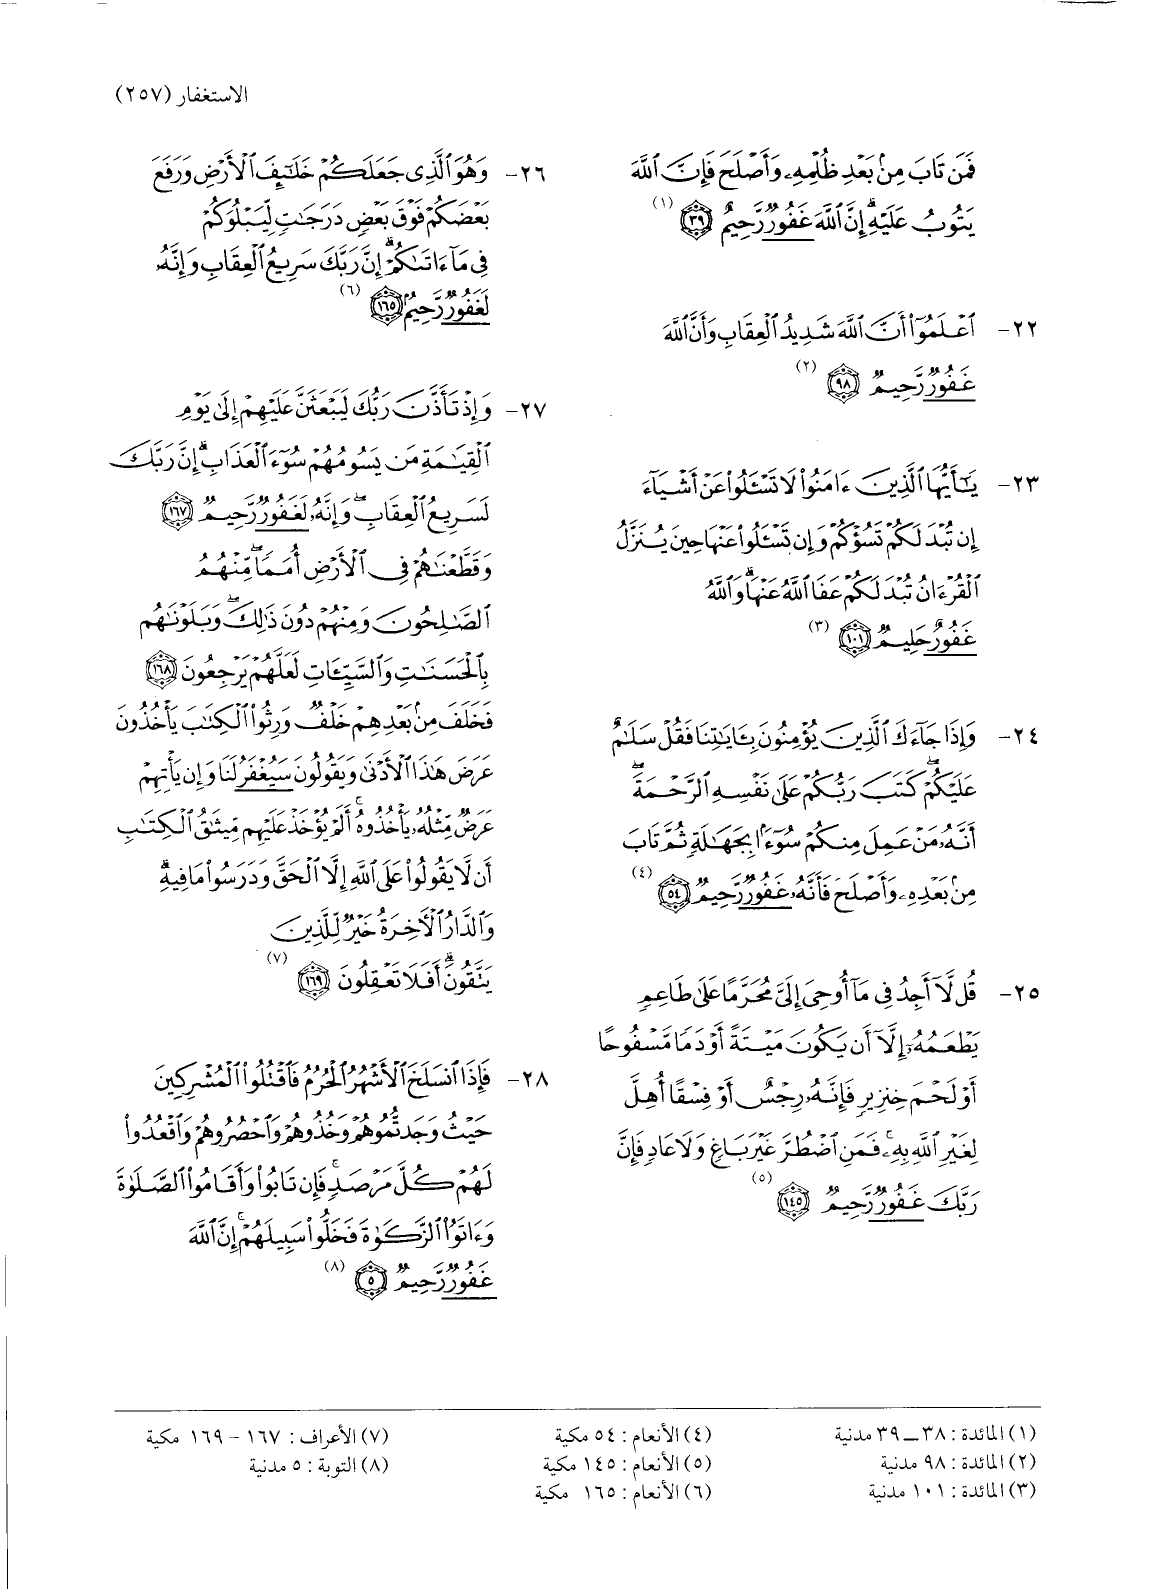 الاستغفار (٢٥٧)
فَمَن تَابَ مِنۢ بَعْدِ ظُلْمِهِۦ وَأَصْلَحَ فَإِنَّ ٱللَّهَ
يَتُوبُ عَلَيْهِ ۗ إِنَّ ٱللَّهَ غَفُورٌ رَّحِيمٌ ﴿٣٩﴾ (١)
٢٢- ٱعْلَمُوٓا۟ أَنَّ ٱللَّهَ شَدِيدُ ٱلْعِقَابِ وَأَنَّ ٱللَّهَ
غَفُورٌ رَّحِيمٌ ﴿٩٨﴾ (٢)
٢٣- يَـٰٓأَيُّهَا ٱلَّذِينَ ءَامَنُوا۟ لَا تَسْـَٔلُوا۟ عَنْ أَشْيَآءَ
إِن تُبْدَ لَكُمْ تَسُؤْكُمْ وَإِن تَسْـَٔلُوا۟ عَنْهَا حِينَ يُنَزَّلُ
ٱلْقُرْءَانُ تُبْدَ لَكُمْ عَفَا ٱللَّهُ عَنْهَا ۗ وَٱللَّهُ
غَفُورٌ حَلِيمٌ ﴿١٠١﴾ (٣)
٢٤- وَإِذَا جَآءَكَ ٱلَّذِينَ يُؤْمِنُونَ بِـَٔايَـٰتِنَا فَقُلْ سَلَـٰمٌ
عَلَيْكُمْ ۖ كَتَبَ رَبُّكُمْ عَلَىٰ نَفْسِهِ ٱلرَّحْمَةَ ۖ
أَنَّهُۥ مَنْ عَمِلَ مِنكُمْ سُوٓءًۢا بِجَهَـٰلَةٍ ثُمَّ تَابَ
مِنۢ بَعْدِهِۦ وَأَصْلَحَ فَأَنَّهُۥ غَفُورٌ رَّحِيمٌ ﴿٥٤﴾ (٤)
٢٥- قُل لَّآ أَجِدُ فِى مَآ أُوحِىَ إِلَىَّ مُحَرَّمًا عَلَىٰ طَاعِمٍ
يَطْعَمُهُۥٓ إِلَّآ أَن يَكُونَ مَيْتَةً أَوْ دَمًا مَّسْفُوحًا
أَوْ لَحْمَ خِنزِيرٍ فَإِنَّهُۥ رِجْسٌ أَوْ فِسْقًا أُهِلَّ
لِغَيْرِ ٱللَّهِ بِهِۦ ۚ فَمَنِ ٱضْطُرَّ غَيْرَ بَاغٍ وَلَا عَادٍ فَإِنَّ
رَبَّكَ غَفُورٌ رَّحِيمٌ ﴿١٤٥﴾ (٥)
٢٦- وَهُوَ ٱلَّذِى جَعَلَكُمْ خَلَـٰٓئِفَ ٱلْأَرْضِ وَرَفَعَ
بَعْضَكُمْ فَوْقَ بَعْضٍ دَرَجَـٰتٍ لِّيَبْلُوَكُمْ
فِى مَآ ءَاتَىٰكُمْ ۗ إِنَّ رَبَّكَ سَرِيعُ ٱلْعِقَابِ وَإِنَّهُۥ
لَغَفُورٌ رَّحِيمٌۢ ﴿١٦٥﴾ (٦)
٢٧- وَإِذْ تَأَذَّنَ رَبُّكَ لَيَبْعَثَنَّ عَلَيْهِمْ إِلَىٰ يَوْمِ
ٱلْقِيَـٰمَةِ مَن يَسُومُهُمْ سُوٓءَ ٱلْعَذَابِ ۗ إِنَّ رَبَّكَ
لَسَرِيعُ ٱلْعِقَابِ ۖ وَإِنَّهُۥ لَغَفُورٌ رَّحِيمٌ ﴿١٦٧﴾
وَقَطَّعْنَـٰهُمْ فِى ٱلْأَرْضِ أُمَمًا ۖ مِّنْهُمُ
ٱلصَّـٰلِحُونَ وَمِنْهُمْ دُونَ ذَٰلِكَ ۖ وَبَلَوْنَـٰهُم
بِٱلْحَسَنَـٰتِ وَٱلسَّيِّـَٔاتِ لَعَلَّهُمْ يَرْجِعُونَ ﴿١٦٨﴾
فَخَلَفَ مِنۢ بَعْدِهِمْ خَلْفٌ وَرِثُوا۟ ٱلْكِتَـٰبَ يَأْخُذُونَ
عَرَضَ هَـٰذَا ٱلْأَدْنَىٰ وَيَقُولُونَ سَيُغْفَرُ لَنَا وَإِن يَأْتِهِمْ
عَرَضٌ مِّثْلُهُۥ يَأْخُذُوهُ ۚ أَلَمْ يُؤْخَذْ عَلَيْهِم مِّيثَـٰقُ ٱلْكِتَـٰبِ
أَن لَّا يَقُولُوا۟ عَلَى ٱللَّهِ إِلَّا ٱلْحَقَّ وَدَرَسُوا۟ مَا فِيهِ ۗ
وَٱلدَّارُ ٱلْـَٔاخِرَةُ خَيْرٌ لِّلَّذِينَ
يَتَّقُونَ ۗ أَفَلَا تَعْقِلُونَ ﴿١٦٩﴾ (٧)
٢٨- فَإِذَا ٱنسَلَخَ ٱلْأَشْهُرُ ٱلْحُرُمُ فَٱقْتُلُوا۟ ٱلْمُشْرِكِينَ
حَيْثُ وَجَدتُّمُوهُمْ وَخُذُوهُمْ وَٱحْصُرُوهُمْ وَٱقْعُدُوا۟
لَهُمْ كُلَّ مَرْصَدٍ ۚ فَإِن تَابُوا۟ وَأَقَامُوا۟ ٱلصَّلَوٰةَ
وَءَاتَوُا۟ ٱلزَّكَوٰةَ فَخَلُّوا۟ سَبِيلَهُمْ ۚ إِنَّ ٱللَّهَ
غَفُورٌ رَّحِيمٌ ﴿٥﴾ (٨)
(١) المائدة : ٣٨ – ٣٩ مدنية
(٢) المائدة : ٩٨ مدنية
(٣) المائدة : ١٠١ مدنية
(٤) الأنعام : ٥٤ مكية
(٥) الأنعام : ١٤٥ مكية
(٦) الأنعام : ١٦٥ مكية
(٧) الأعراف : ١٦٧ – ١٦٩ مكية
(٨) التوبة : ٥ مدنية